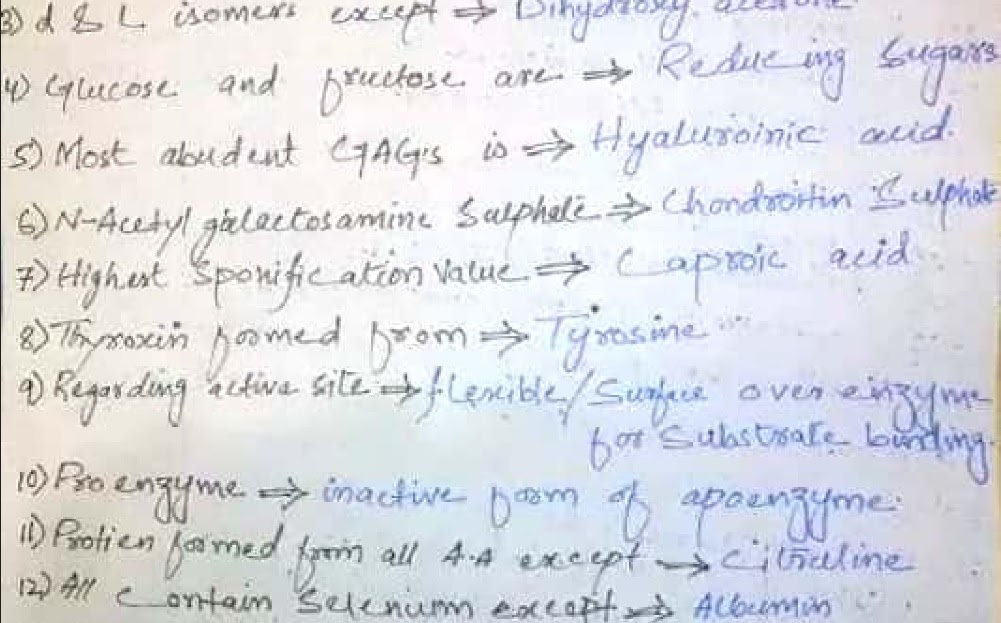 3) d & L isomers except ⇒ Dihydroxy acetone
4) Glucose and fructose are ⇒ Reducing Sugars
5) Most abudent GAG's is ⇒ Hyaluroinic acid.
6) N-Acetyl galactosamine Sulphate ⇒ Chondroitin Sulphate
7) Highest Sponification Value ⇒ Caproic acid
8) Thyroxin formed from ⇒ Tyrosine
9) Regarding active site ⇒ flexible/Surface over einzyme
for Substrate binding.
10) Pro enzyme ⇒ inactive form of apoenzyme.
11) Protien formed from all A.A except → Citruline
12) All Contain Selenium except ⇒ Albumin